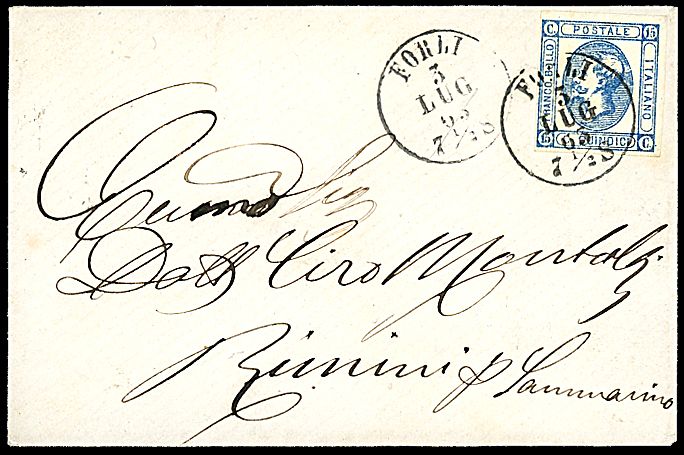 FORLI
3
LUG
63
7 1/2 S
C. POSTALE 15
FRANCO BOLLO
ITALIANO
15 QUINDICI C.
FORLI
3
LUG
63
7 1/2 S
Dott Ciro Montalti
Rimini p Sanmarino